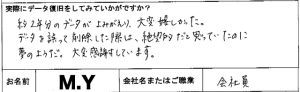 実際にデータ復旧をしてみていかがですか？
約2年分のデータがよみがえり、大変嬉しかった。
データを誤って削除した際は、絶望的だと思っていたのに
夢のようだ。大変感謝しています。
お名前 M.Y 会社名またはご職業 会社員